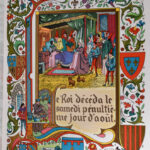 e Roi décéda le
samedi pénultiè-
me jour d'août.